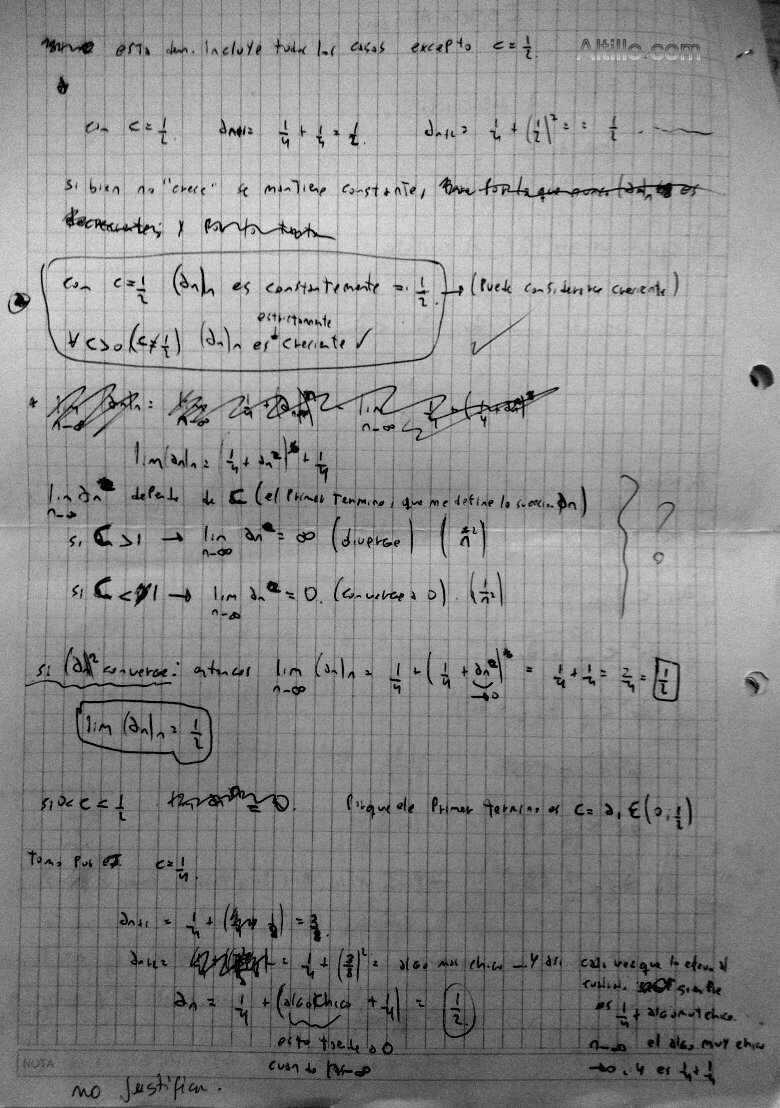 esta dem. incluye todos los casos excepto c = 1/2. Altillo.com
con c = 1/2. an+1 = 1/4 + 1/4 = 1/2. an+2 = 1/4 + (1/2)^2 = = 1/2 ...
si bien no "crece" se mantiene constante,
con c = 1/2 (an)n es constantemente = 1/2. → (puede considerarse creciente)
estrictamente
∀ c>0 (c ≠ 1/2) (an)n es creciente ✓
lim (an)n = (1/4 + an^2) + 1/4
lim n→∞ an depende de C (el primer termino, que me define la sucesion an)
si C > 1 → lim n→∞ an = ∞ (diverge) (n^2)
si C < 1 → lim n→∞ an = 0. (converge a 0). (1/n^2) ?
si (an)^2 converge: entonces lim n→∞ (an)n = 1/4 + (1/4 + an^2) = 1/4 + 1/4 = 2/4 = 1/2
→0
lim (an)n = 1/2
si 0 < c < 1/2 Porque el Primer termino es C = a1 ∈ (0, 1/2)
Tomo por ej c = 1/4.
an+1 = 1/4 + ( ) = 3/8.
an+2 = = 1/4 + (3/8)^2 = algo mas chico ... y asi cada vez que lo elevo al
siempre
an = 1/4 + (algo chico + 1/4) = 1/2 es 1/4 + algo muy chico.
esto tiende a 0 n→∞ el algo muy chico
cuando n→∞ →0, y es 1/4 + 1/4
NOTA
no justifica.